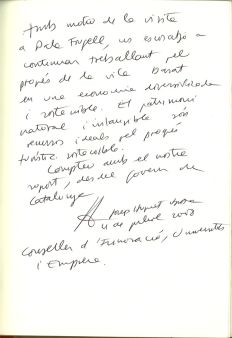 Amb motiu de la visita
a Palafrugell, us encoratjo a
continuar treballant pel
progrés de la vila basat
en una economia diversificada
i sostenible. El patrimoni
natural i intangible són
recursos ideals pel progrés
turístic sostenible.
Compteu amb el nostre
suport, des del govern de
Catalunya
Josep Huguet
11 de juliol 2008
Conseller d'Innovació, Universitats
i Empresa.